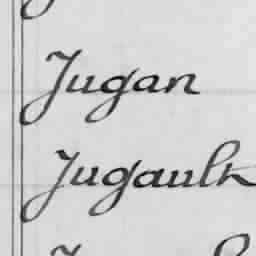 Jugan
Jugault